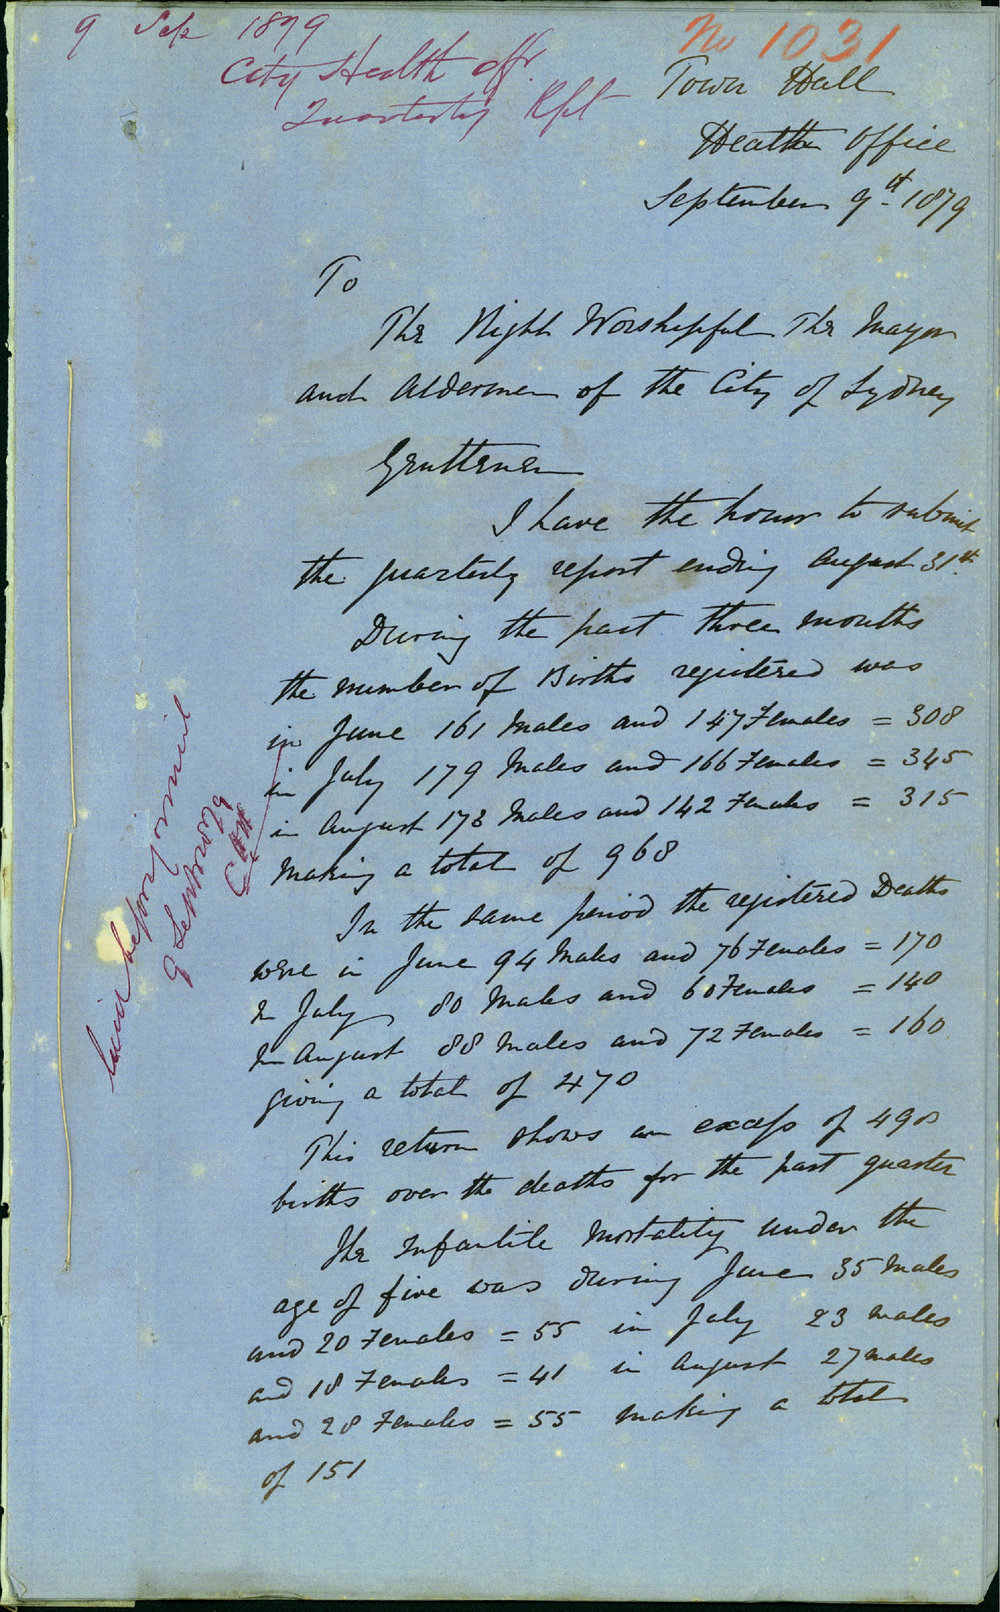 9 Sep 1879
City Health offr.
Quarterly Rpt
No 1031
Town Hall
Health Office
September 9th. 1879
To
The Right Worshipful The Mayor
and Aldermen of the City of Sydney
Gentlemen
I have the honor to submit
the quarterly report ending August 31st.
During the past three months
the number of Births registered was
in June 161 Males and 147 Females = 308
in July 179 Males and 166 Females = 345
in August 173 Males and 142 Females = 315
Making a total of 968
In the same period the registered Deaths
were in June 94 Males and 76 Females = 170
In July 80 Males and 60 Females = 140
In August 88 Males and 72 Females = 160
giving a total of 470
This return shows an excess of 498
births over the deaths for the past quarter
The Infantile Mortality under the
age of five was during June 35 Males
and 20 Females = 55 in July 23 Males
and 18 Females = 41 in August 27 Males
and 28 Females = 55 making a total
of 151
Laid before Council
9 September 79